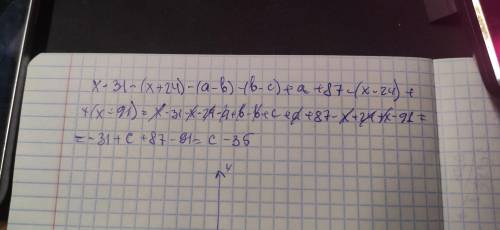 x - 31 - (x+24) - (a-b) - (b-c) + a + 87 - (x-24) +
+(x-91) = x - 31 - x - 24 - a + b - b + c + a + 87 - x + 24 + x - 91 =
= -31 + c + 87 - 91 = c - 35
y